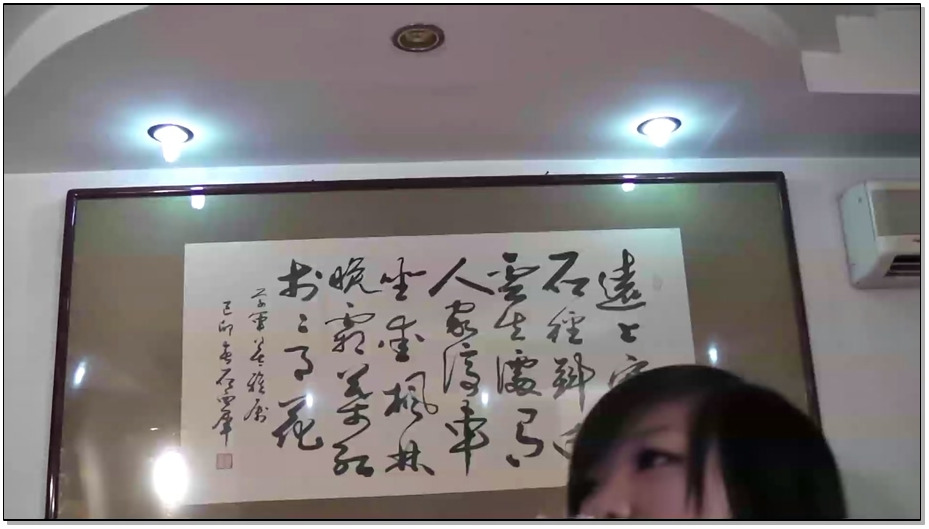 遠上寒
石徑斜白
雲生處有
人家停車
坐愛楓林
晚霜葉紅
於二月花
雅屬
己卯春石